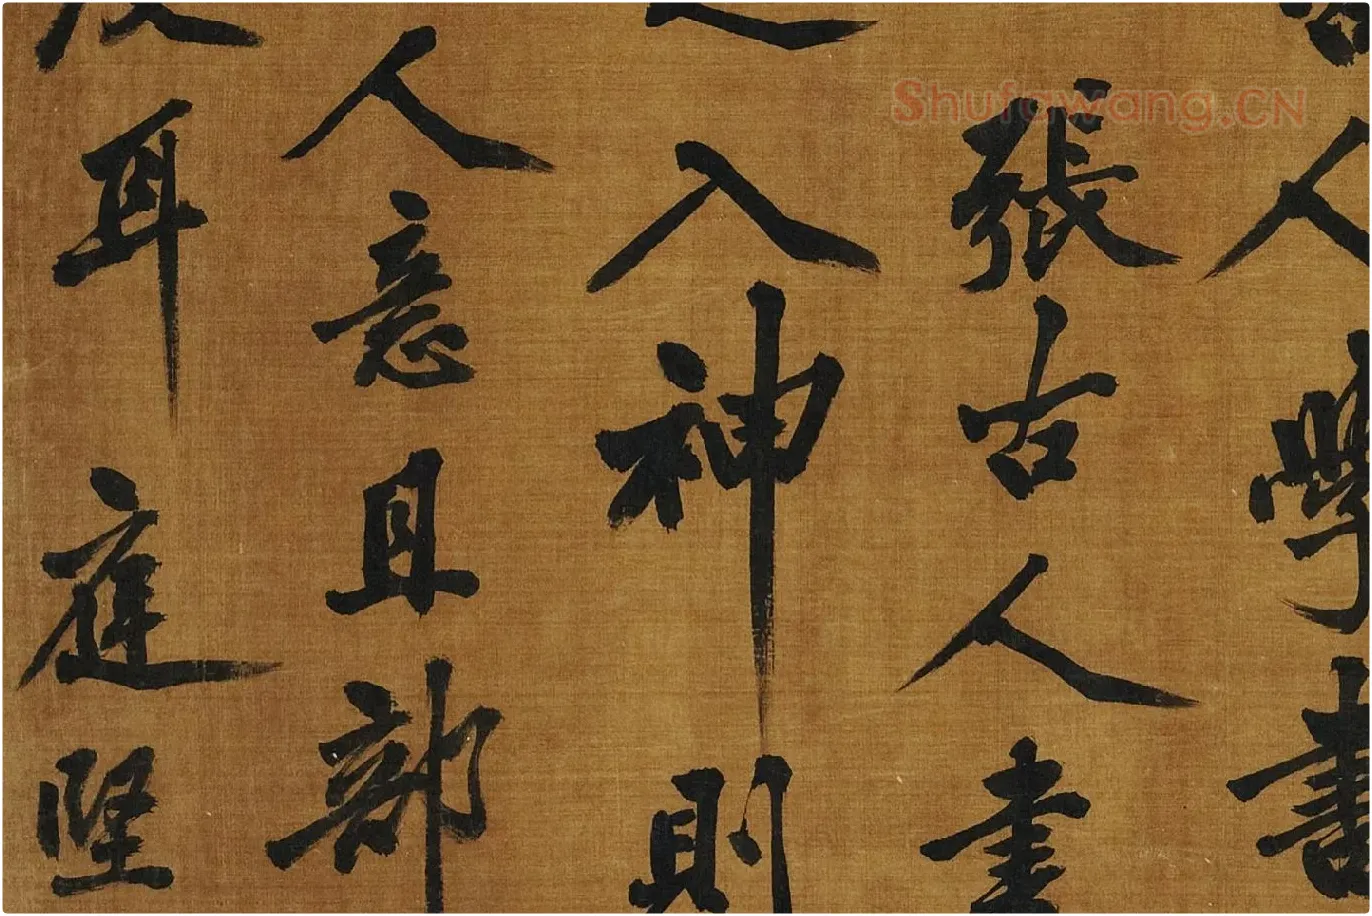 人學書
張古人書
入神則
人意且部
耳庭堅
Shufawang.CN